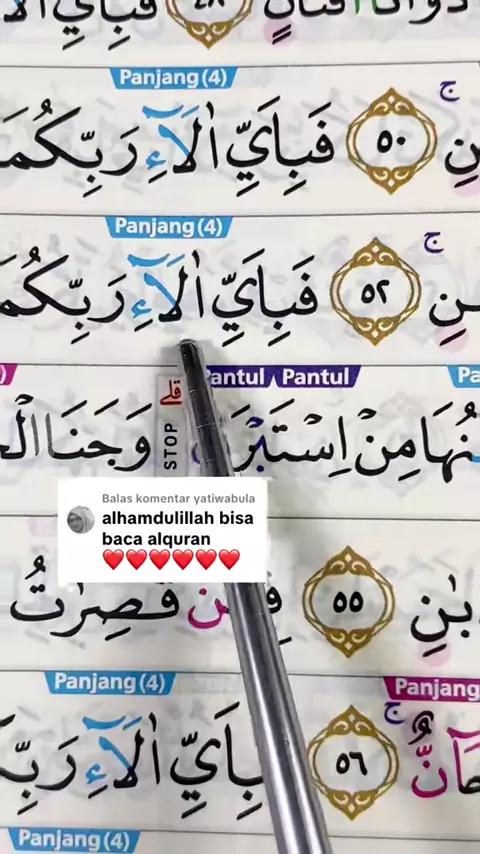 ذَوَاتَآ اَفْنَانٍ ٤٨ فَبِاَيِّ
Panjang (4)
نِ ۚ ٥٠ فَبِاَيِّ اٰلَاۤءِ رَبِّكُمَا
Panjang (4)
نِ ۚ ٥٢ فَبِاَيِّ اٰلَاۤءِ رَبِّكُمَا
Pantul Pantul
نُهَا مِنْ اِسْتَبْرَقٍ ۗ STOP وَجَنَا
Balas komentar yatiwabula
alhamdulillah bisa
baca alquran
❤️❤️❤️❤️❤️❤️
ٰبٰنِ ٥٥ فِيْهِنَّ قٰصِرٰتُ
Panjang (4)
Panjang
جَاۤنٌّ ۚ ٥٦ فَبِاَيِّ اٰلَاۤءِ رَبِّ
Panjang (4)